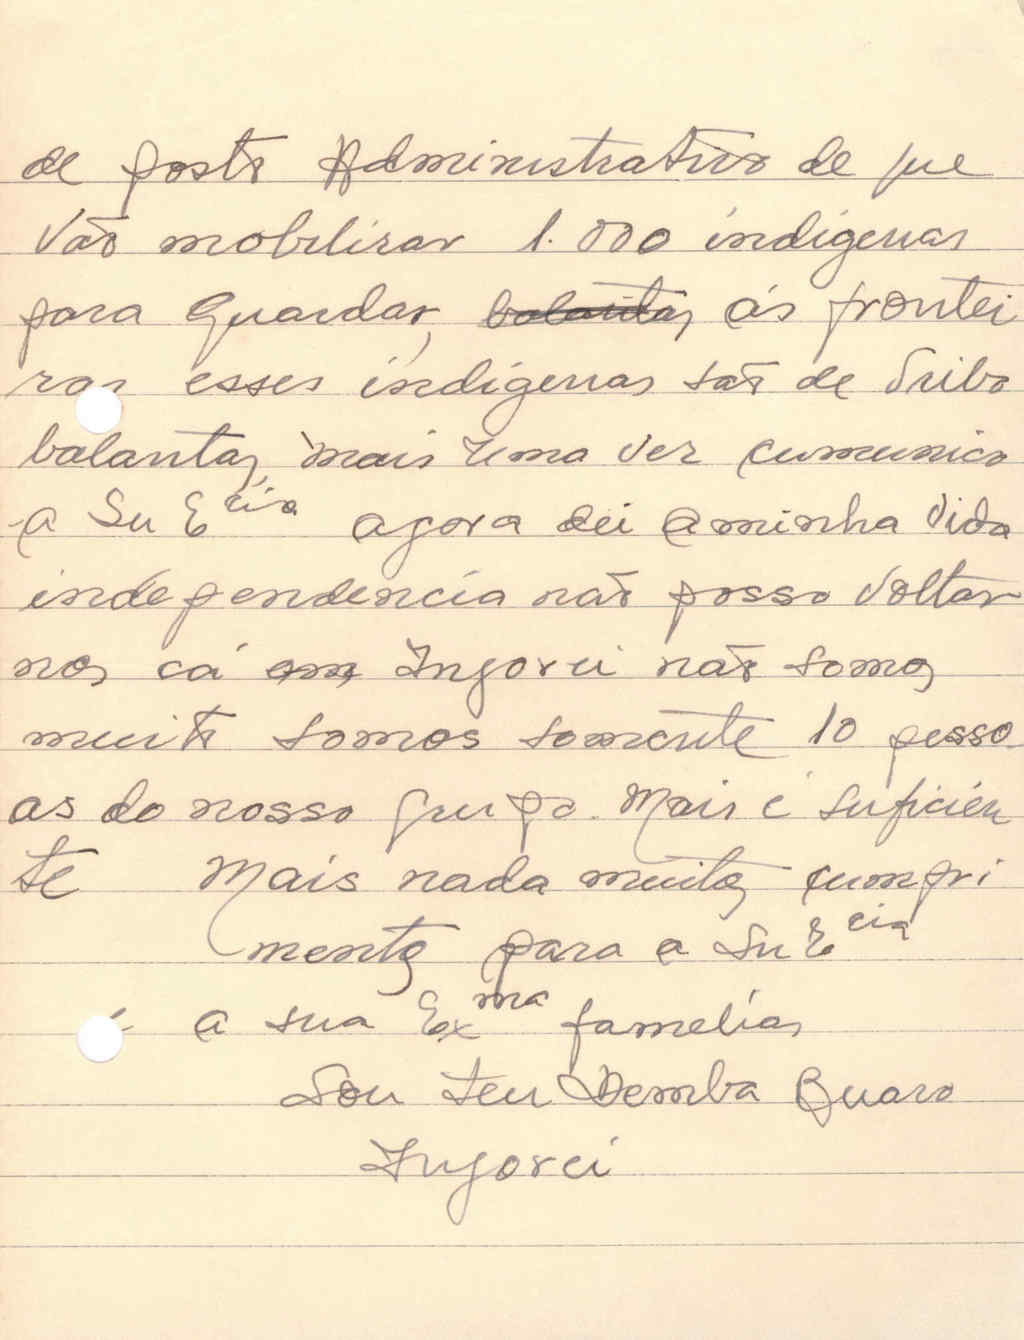 de posto Administrativo de que
vão mobilirar 1.000 indígenas
para Guardar, balantas ás frontei
ras esses indígenas são de tribo
balantas, mais uma ver cumunico
a Su Ecia agora dei a minha vida
independencia não posso voltar
nos cá em Ingorei não somos
muito somos somente 10 pesso
as do nosso Grupo. Mais é suficién
te Mais nada muitos cumpri
mentos para a Su Ecia
é a sua Exma famelias
Sou teu Demba Buaro
Ingorei